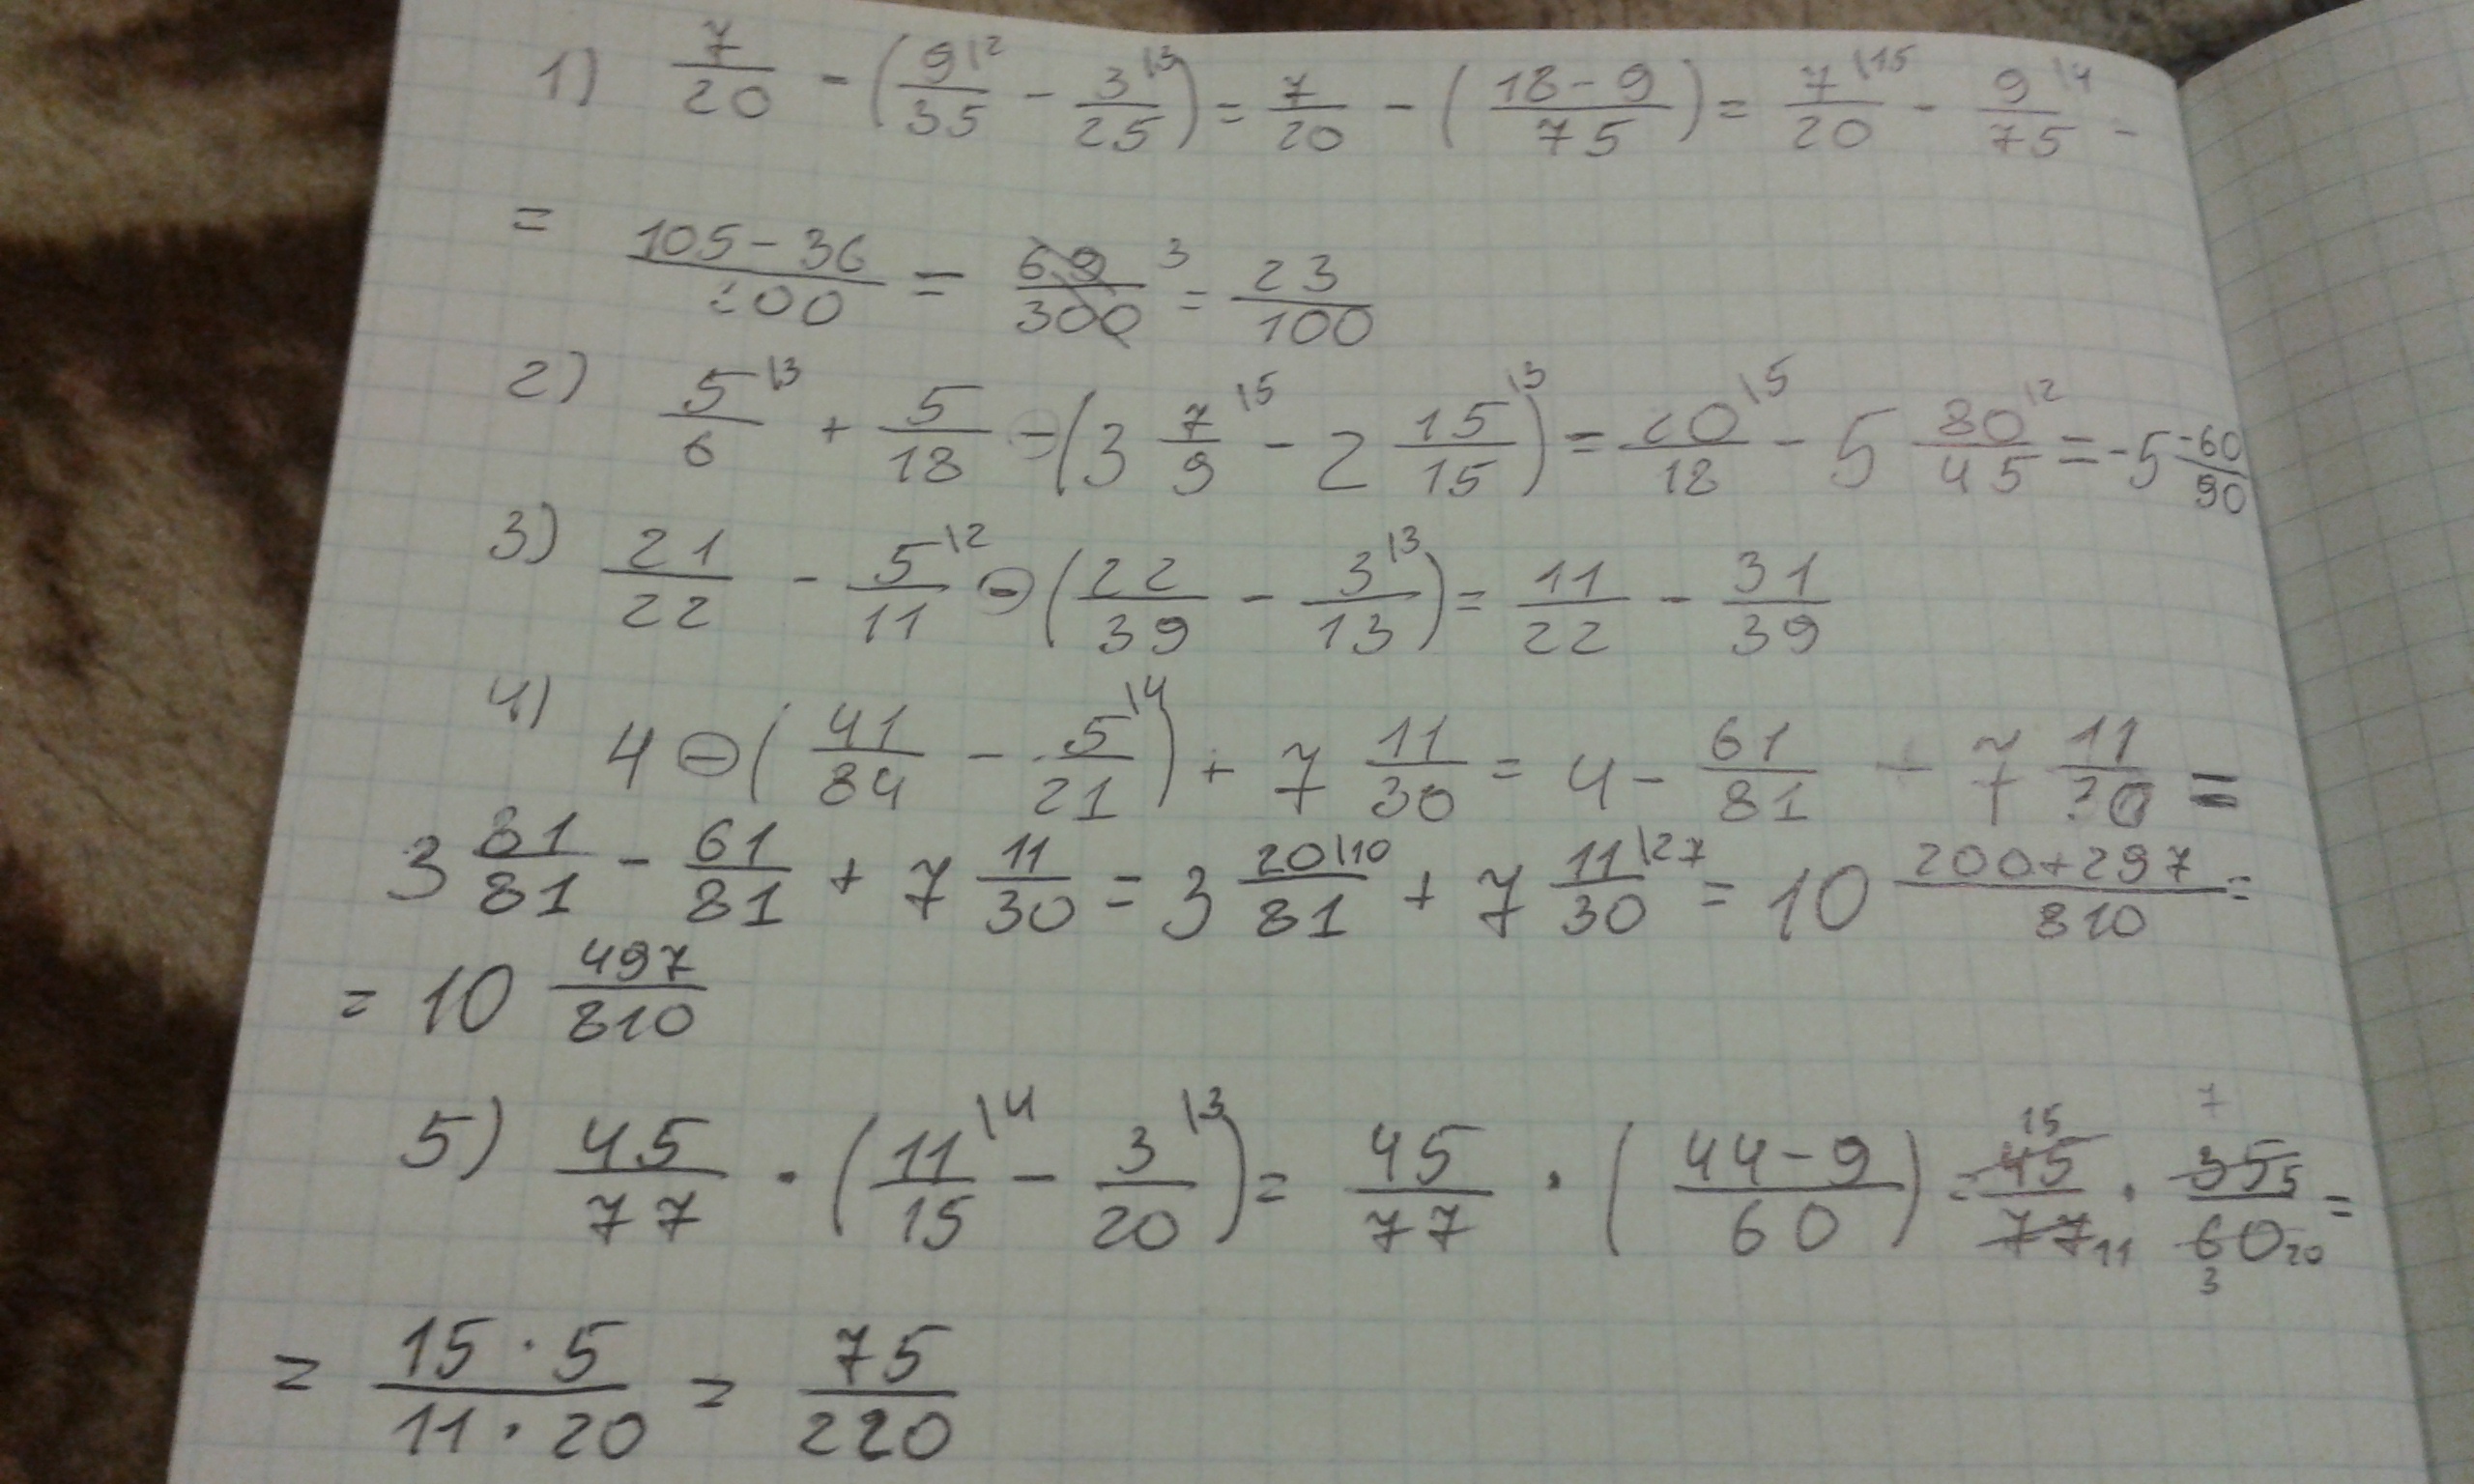 1) 7/20 - (9\2/35 - 3\3/25) = 7/20 - (18-9/75) = 7\15/20 - 9\4/75 =
= 105-36/200 = 69/300 3 = 23/100
2) 5\3/6 + 5/18 - (3 7\5/9 - 2 15\3/15) = 20\5/18 - 5 80\2/45 = -5 -60/90
3) 21/22 - 5\2/11 - (22/39 - 3\3/13) = 11/22 - 31/39
4) 4 - (41/84 - 5\4/21) + 7 11/30 = 4 - 61/81 + 7 11/30 =
3 81/81 - 61/81 + 7 11/30 = 3 20\10/81 + 7 11\27/30 = 10 200+297/810 =
= 10 497/810
5) 45/77 · (11\4/15 - 3\3/20) = 45/77 · (44-9/60) = 45 15/77 11 · 7 35 5/60 20 3 =
= 15·5/11·20 = 75/220